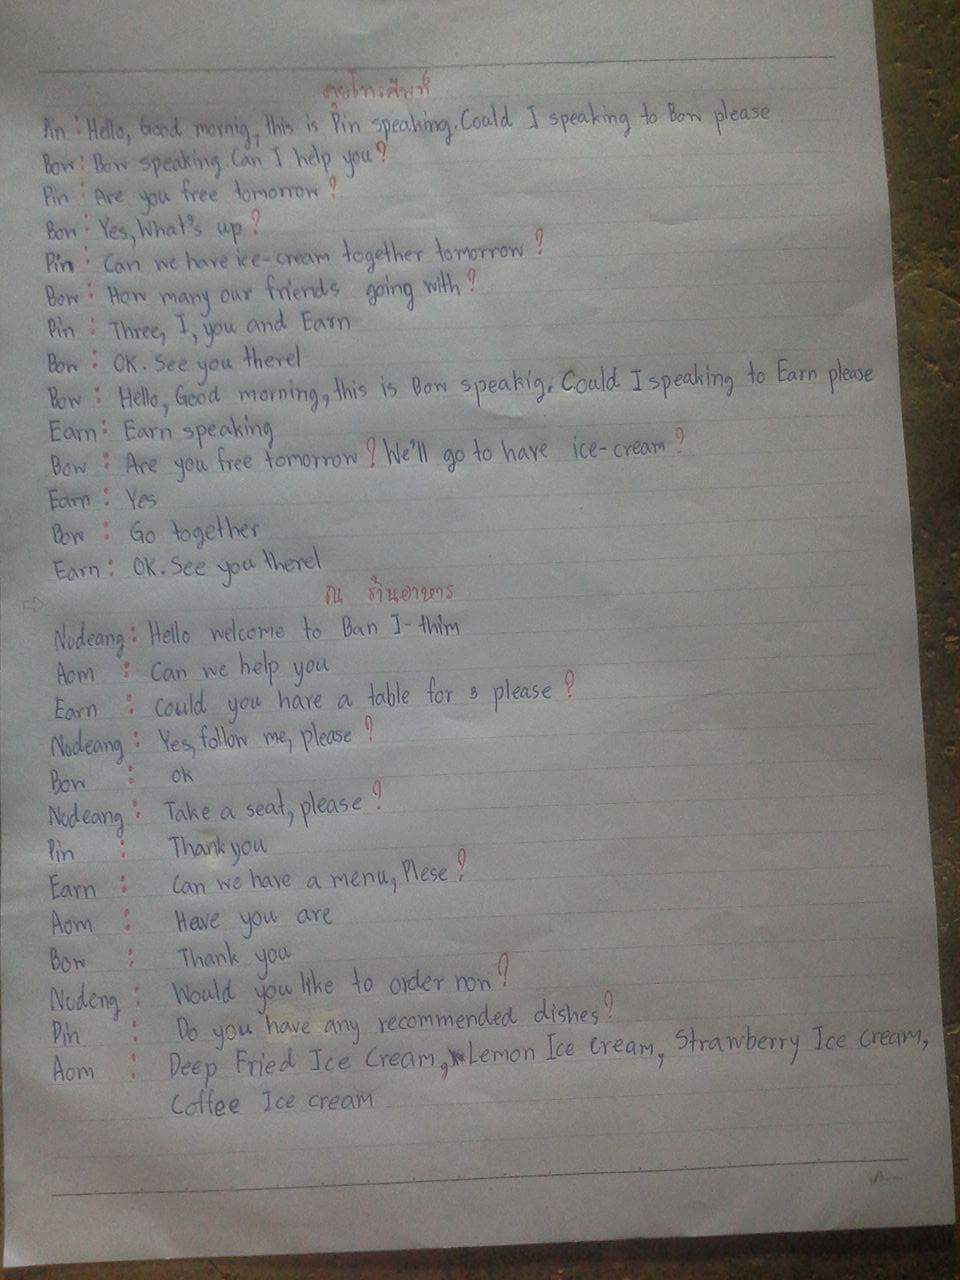 คุยโทรศัพท์
Pin : Hello, Good mornig, this is Pin speaking. Could I speaking to Bow please
Bow : Bow speaking Can I help you?
Pin : Are you free tomorrow?
Bow : Yes, What's up?
Pin : Can we have ice-cream together tomorrow?
Bow : How many our friends going with?
Pin : Three, I, you and Earn
Bow : OK. See you therel
Bow : Hello, Good morning, this is Bow speakig. Could I speaking to Earn please
Earn : Earn speaking
Bow : Are you free tomorrow? We'll go to have ice-cream?
Earn : Yes
Bow : Go together
Earn : OK. See you therel
ณ ร้านอาหาร
Nodeang : Hello welcome to Ban I-thim
Aom : Can we help you
Earn : Could you have a table for 3 please?
Nodeang : Yes, follow me, please?
Bow : OK
Nodeang : Take a seat, please?
Pin : Thank you
Earn : Can we have a menu, Plese?
Aom : Have you are
Bow : Thank you
Nodeng : Would you like to order now?
Pin : Do you have any recommended dishes?
Aom : Deep Fried Ice Cream, Lemon Ice cream, Strawberry Ice cream,
Coffee Ice cream